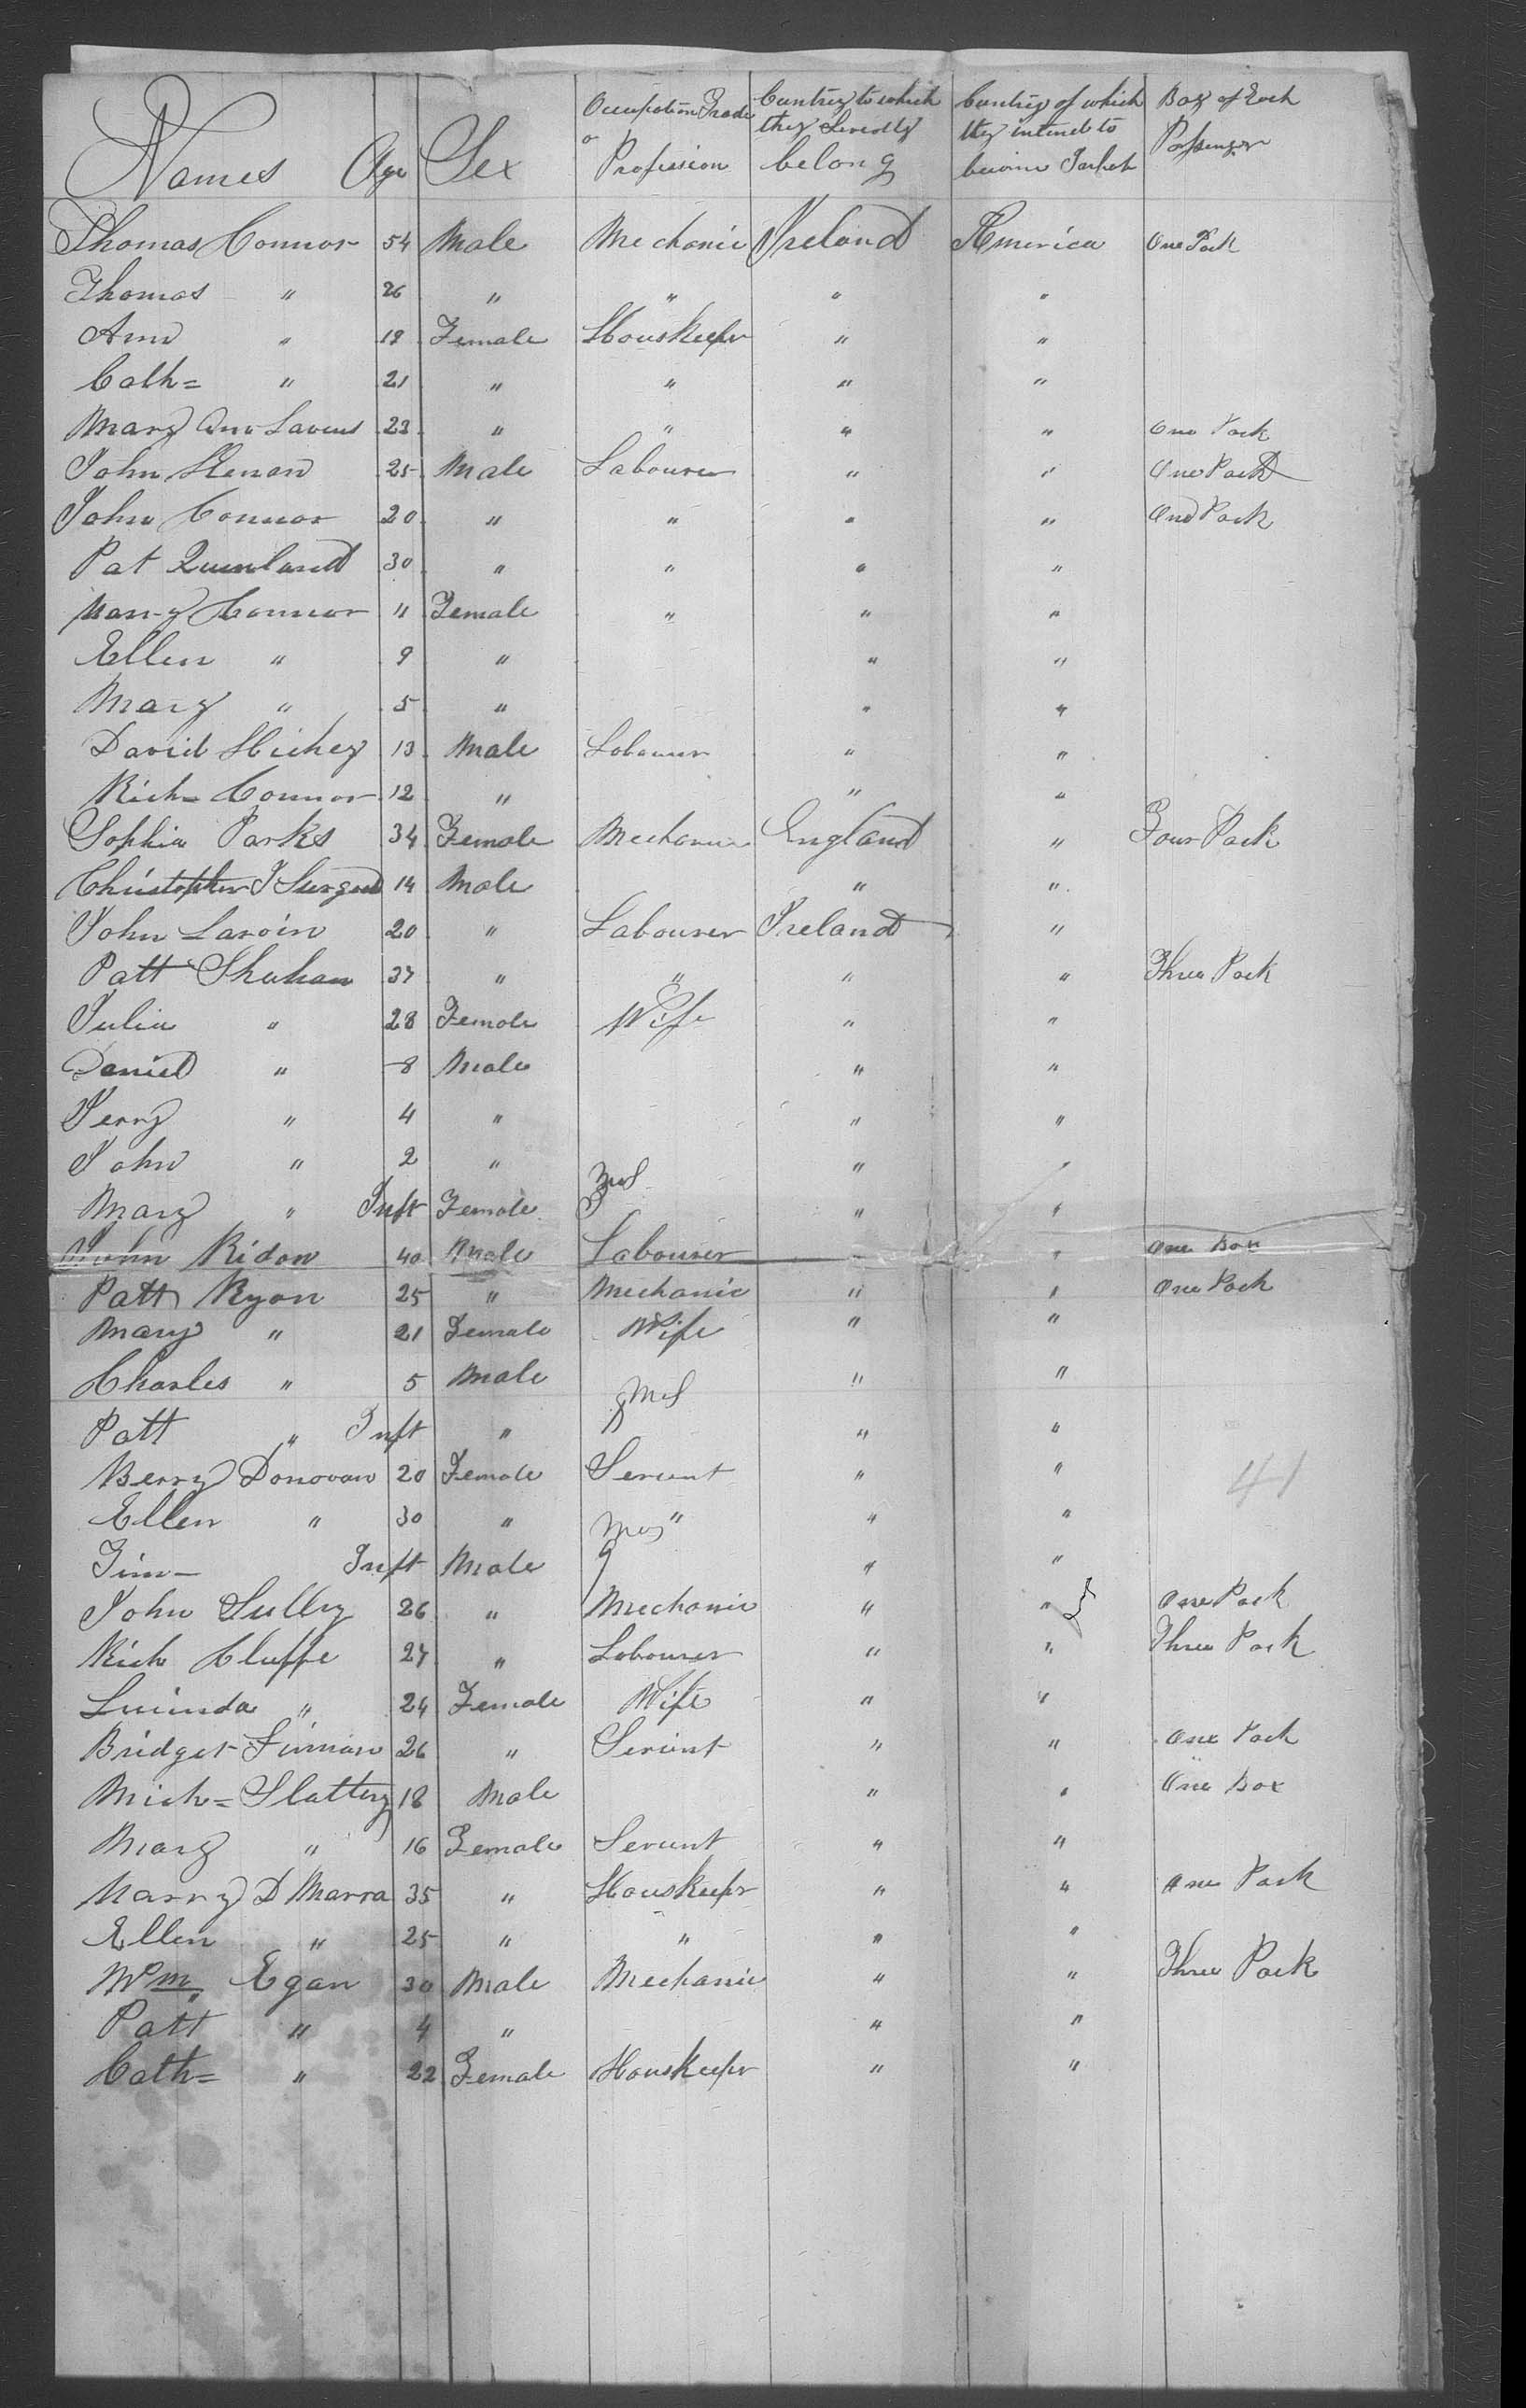 Names Age Sex Occupation Trade or Profession Cuntrey to which they Severolly belong Cuntrey of which they intend to become Bag of Each Passenger
Thomas Connor 54 Male Mechanic Ireland America One Pack
Thomas " 26 " " " "
Ann " 19 Female Houskeeper " "
Cath= " 21 " " " "
Mary Ann 23 " " " " One Pack
John 25 Male Labourer " " One Pack
John Connor 20 " " " " One Pack
Pat Quinland 30 " " " "
Connor 11 Female " " "
Ellen " 9 " " "
Mary " 5 " " "
David Hickey 13 Male Labourer " "
Rich= Connor 12 " " "
Sophia Parks 34 Female Mechanic England " Four Pack
Christopher 14 Male " "
John Lavoin 20 " Labourer Ireland "
Patt Shuhan 37 " " " " Three Pack
Julia " 28 Female Wife " "
Daniel " 8 Male " "
Jerry " 4 " " "
John " 2 " " "
Mary " Inft Female " "
John Ridon 40 Male Labourer " " One Box
Patt Ryan 25 " Mechanic " " One Pack
Mary " 21 Female Wife " "
Charles " 5 Male " "
Patt " Inft " " "
Berry Donovan 20 Female Servent " "
41
Ellen " 30 " " " "
Tim - Inft Male " "
John Sulley 26 " Mechanic " " One Pack
Rich Cluffe 27 " Labourer " " Three Pack
Lucinda " 24 Female Wife " "
Bridget 26 " Servent " " One Pack
Mich= Slattery 18 Male " " One Box
Mary " 16 Female Servent " "
D Marra 35 " Houskeeper " " One Pack
Ellen " 25 " " " "
Wm. Egan 30 Male Mechanic " " Three Pack
Patt " 4 " " "
Cath= " 22 Female Houskeeper " "